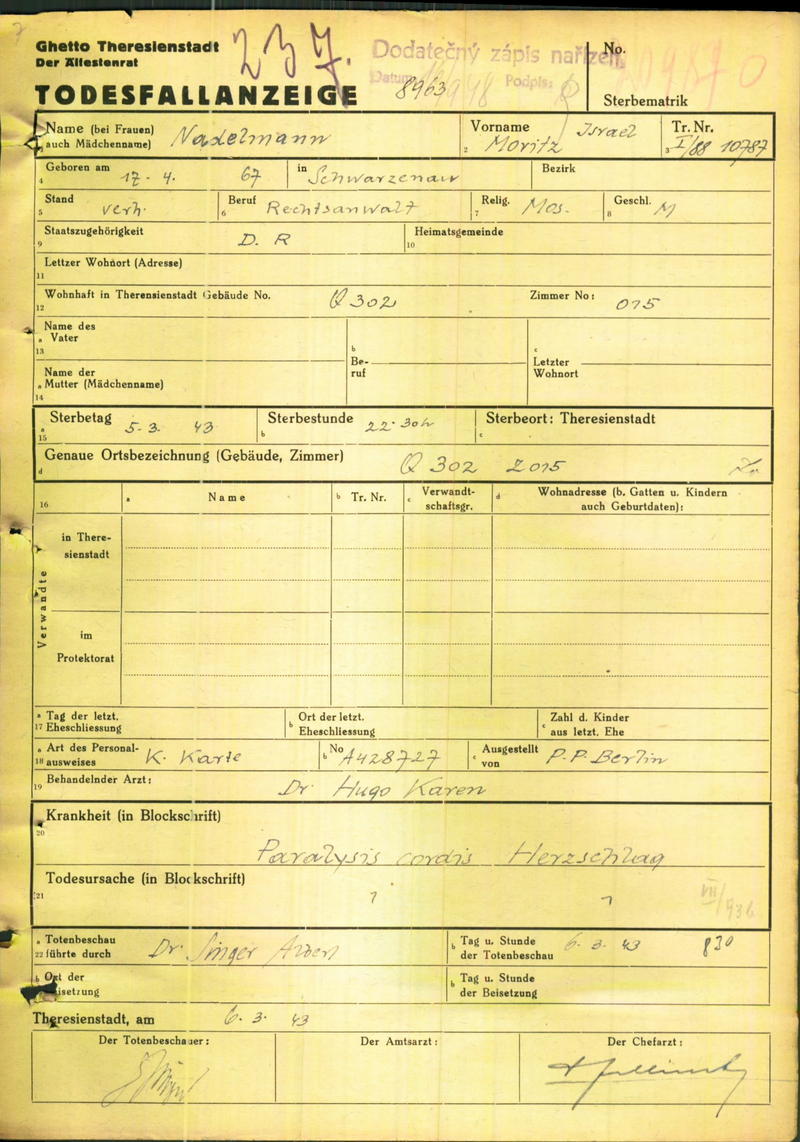 Ghetto Theresienstadt
Der Ältestenrat
237.
Dodatečný zápis nařízen
Datum Podpis:
No.
TODESFALLANZEIGE
8963
Sterbematrik
Name (bei Frauen) auch Mädchenname) Nadelmann
Vorname Moritz Israel
2
Tr. Nr. I/88 10787
3
Geboren am 17. 4. 67
4
in Schwarzenau
Bezirk
Stand verh.
5
Beruf Rechtsanwalt
6
Relig. Mos.
7
Geschl. M
8
Staatszugehörigkeit D. R
9
Heimatsgemeinde
10
Lettzer Wohnort (Adresse)
11
Wohnhaft in Therensienstadt Gebäude No. Q 302
12
Zimmer No: 015
Name des
a Vater
13
b
Be-
ruf
c
Letzter
Wohnort
Name der
a Mutter (Mädchenname)
14
Sterbetag 5. 3. 43
a
15
Sterbestunde 22.30h
b
Sterbeort: Theresienstadt
c
Genaue Ortsbezeichnung (Gebäude, Zimmer) Q 302 Z 015
d
16
a Name
b Tr. Nr.
c Verwandt-
schaftsgr.
d Wohnadresse (b. Gatten u. Kindern
auch Geburtdaten):
Verwandte
in There-
sienstadt
im
Protektorat
a Tag der letzt.
17 Eheschliessung
b Ort der letzt.
Eheschliessung
c Zahl d. Kinder
aus letzt. Ehe
a Art des Personal-
18 ausweises K. Karte
b No A428727
c Ausgestellt
von P.P. Berlin
Behandelnder Arzt:
19
Dr. Hugo Karen
Krankheit (in Blockschrift)
20
Paralysis cordis Herzschlag
Todesursache (in Blockschrift)
21
a Totenbeschau
22 führte durch Dr. Singer
b Tag u. Stunde
der Totenbeschau 6. 3. 43 830
b Ort der
Beisetzung
b Tag u. Stunde
der Beisetzung
Theresienstadt, am 6. 3. 43
Der Totenbeschauer:
Der Amtsarzt:
Der Chefarzt: